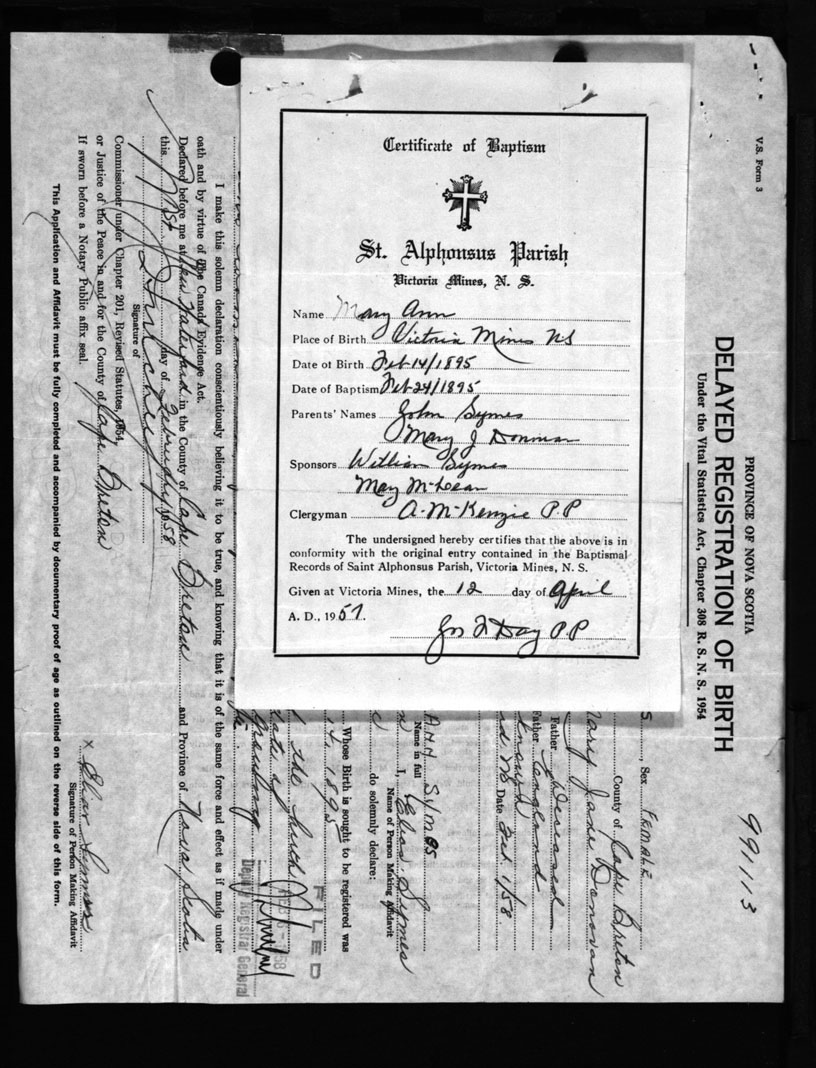 Certificate of Baptism
St. Alphonsus Parish
Victoria Mines, N. S.
Name Mary Ann
Place of Birth Victoria Mines NS
Date of Birth Feb 14/1895
Date of Baptism Feb 24/1895
Parents' Names John Symes
Mary J Donman
Sponsors William Symes
Mary McLean
Clergyman A. McKenzie P.P
The undersigned hereby certifies that the above is in
conformity with the original entry contained in the Baptismal
Records of Saint Alphonsus Parish, Victoria Mines, N. S.
Given at Victoria Mines, the 12 day of April
A. D., 1957.
Jos F Day P P
V.S. Form 3
PROVINCE OF NOVA SCOTIA
991113
DELAYED REGISTRATION OF BIRTH
Under the Vital Statistics Act, Chapter 308 R. S. N. S. 1954
S, Sex FEMALE
County of Cape Breton
Mary Jane Donovan
Father Deceased
Father England
Date Feb. 1/58
ANN SYMES
Name in full
I, Elias Symes
Name of Person Making Affidavit
do solemnly declare:
Whose Birth is sought to be registered was
14, 1895
the birth
date of
FILED
FEB 1958
Deputy Registrar General
I make this solemn declaration conscientiously believing it to be true, and knowing that it is of the same force and effect as if made under
oath and by virtue of The Canada Evidence Act.
Declared before me at New Waterford in the County of Cape Breton and Province of Nova Scotia
this 1st day of February 1958
Signature of
Commissioner under Chapter 201, Revised Statutes, 1954,
or Justice of the Peace in and for the County of Cape Breton
If sworn before a Notary Public affix seal.
x Elias Symes
Signature of Person Making Affidavit
This Application and Affidavit must be fully completed and accompanied by documentary proof of age as outlined on the reverse side of this form.